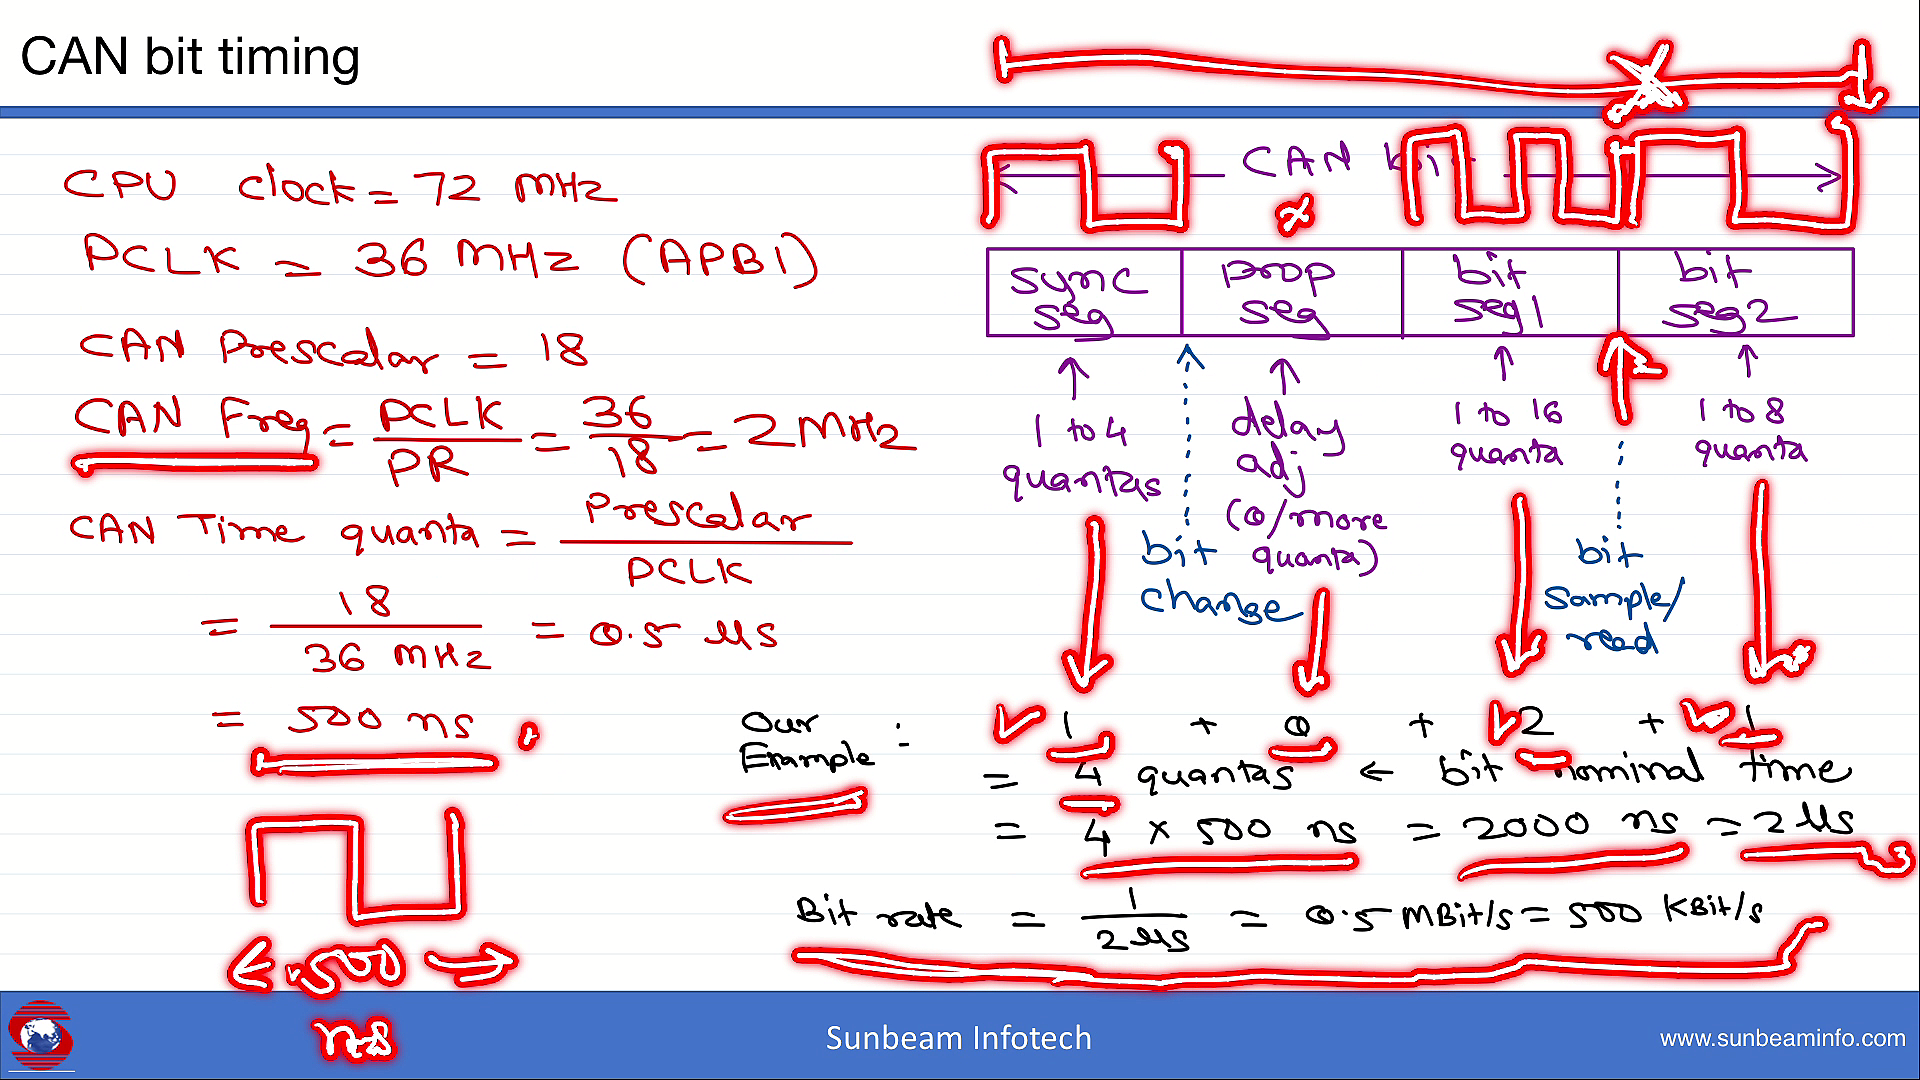 CAN bit timing
CPU clock = 72 MHz
PCLK = 36 MHz (APB1)
CAN Prescalar = 18
CAN Freq = PCLK / PR = 36 / 18 = 2 MHz
CAN Time quanta = Prescalar / PCLK
= 18 / 36 MHz = 0.5 μs
= 500 ns
500
ns
CAN bit
sync seg
prop seg
bit seg1
bit seg2
1 to 4 quantas
bit change
delay adj (0/more quanta)
1 to 16 quanta
bit sample/read
1 to 8 quanta
Our Example : 1 + 0 + 2 + 1
= 4 quantas ← bit nominal time
= 4 x 500 ns = 2000 ns = 2 μs
Bit rate = 1 / 2μs = 0.5 MBit/s = 500 KBit/s
Sunbeam Infotech
www.sunbeaminfo.com